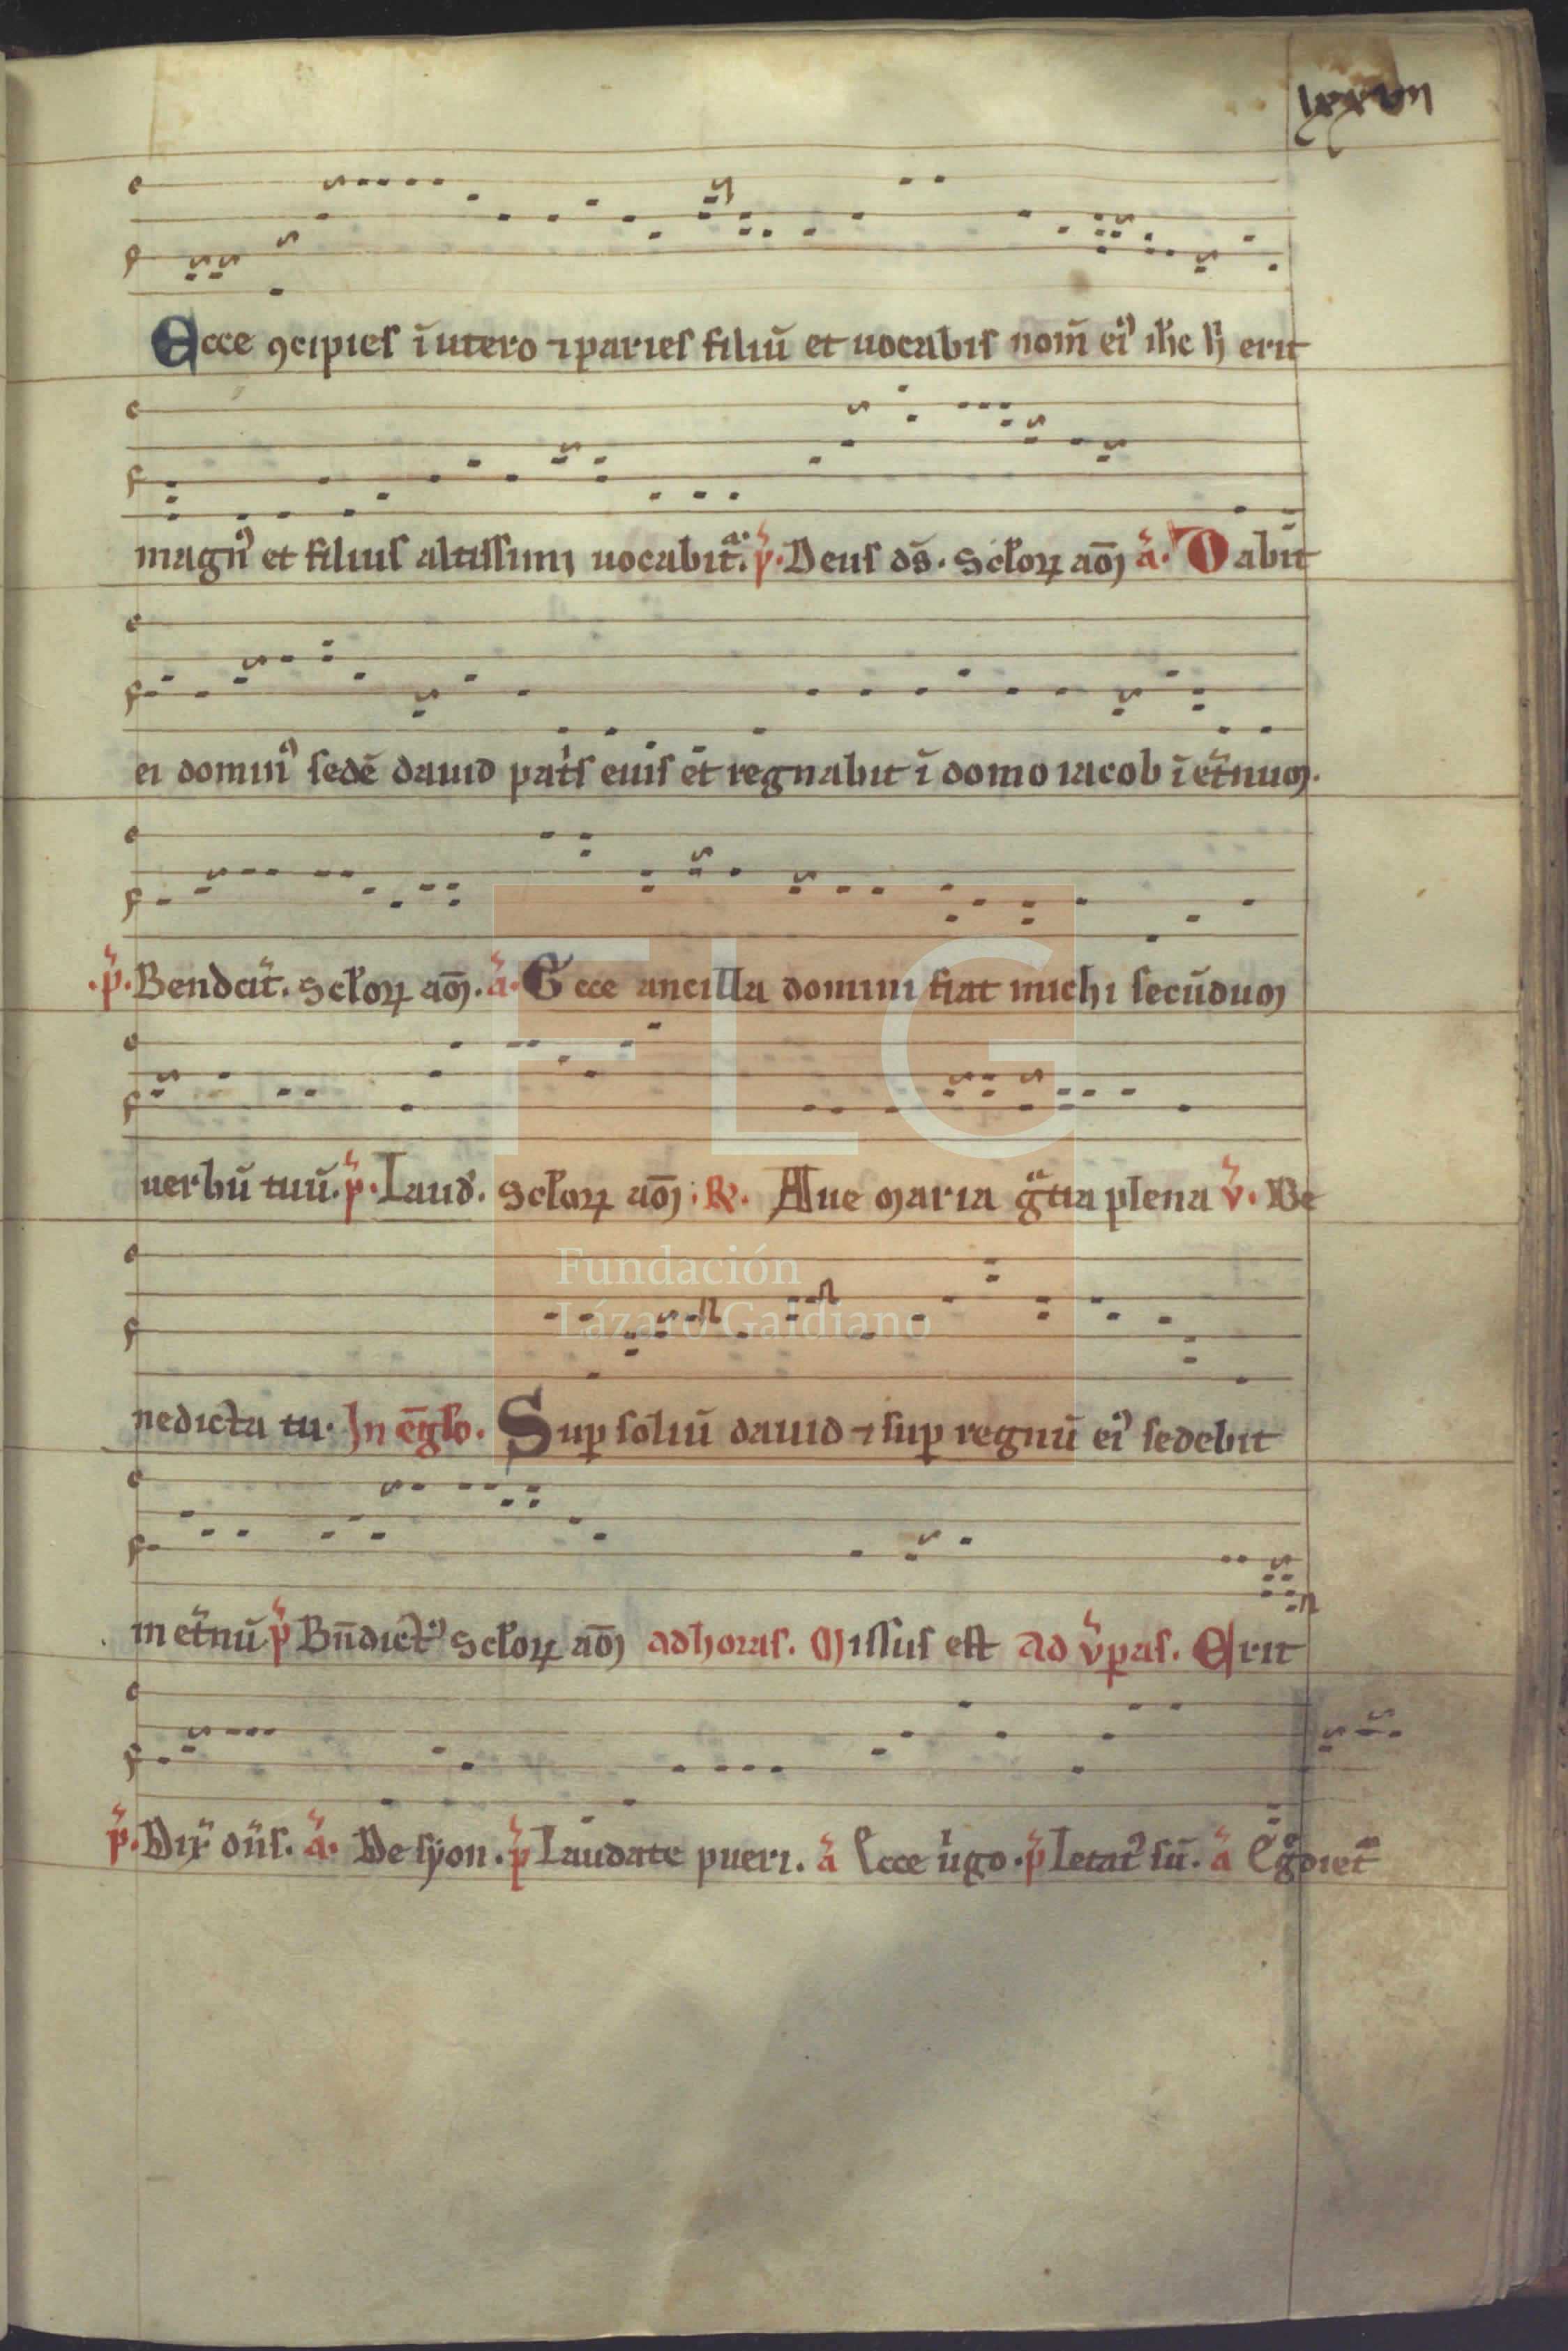 lxxvii
Ecce ꝯcipies ĩ utero ⁊ paries filiũ et uocabis nom̃ ei᷒ ihc h̃ erit
magn᷒ et filius altissimi uocabit᷑. p̃. Deus ds̃. Sclor̃ꝝ aõ] ã. Dabit
ei domin᷒ sedẽ dauid pat̃s euis et regnabit ĩ domo iacob ĩ et̃num.
.p̃. Bendcit̃. Scloꝝ aõ]. ã. Ecce ancilla domini fiat michi secũdum
uerbũ tuũ. p̃. Laud̃. Scloꝝ aõ]. R̷. Aue maria gͣtia plena ṽ. Be
nedicta tu. In eũglo. Suꝑ soliũ dauid ⁊ suꝑ regnũ ei᷒ sedebit
in et̃nũ p̃ Bñdict᷒ Scloꝝ aõ] ad horas. Missus est Ad ṽꝑas. Erit
p̃. Dix̃ dñs. ã. De syon. p̃ Laudate pueri. ã Ecce uͥgo. p̃ Letat᷒ sũ. ã Egͬdiet᷑
FLG
Fundación
Lázaro Galdiano